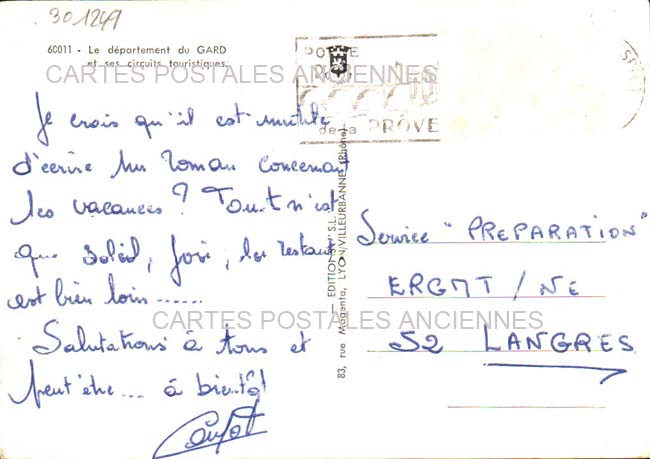 301249
60011 - Le département du GARD
et ses circuits touristiques.
CARTES POSTALES ANCIENNES
PORTE
de la PROVE
Je crois qu'il est inutile
d'écrire un roman concernant
les vacances ? Tout n'est
que soleil, joie, le restant
est bien loin.......
CARTES POSTALES ANCIENNES
Salutations à tous et
peut'être... à bientôt
— EDITIONS "S.L." —
83, rue Magenta, LYON/VILLEURBANNE (Rhône)
Service "PREPARATION"
ERGMT / NE
52 LANGRES